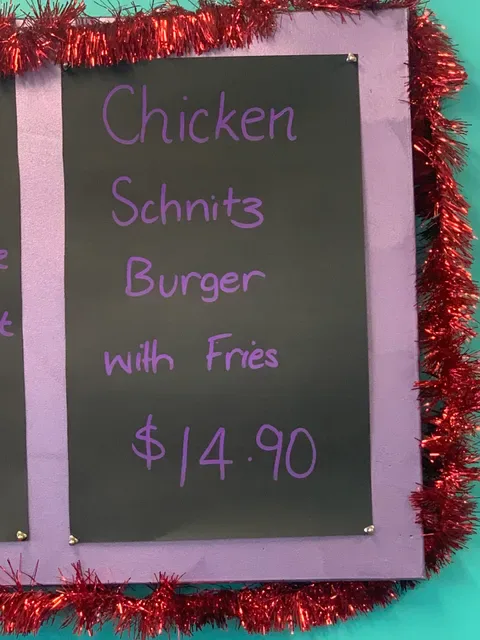 Chicken
Schnitz
Burger
with Fries
$14.90